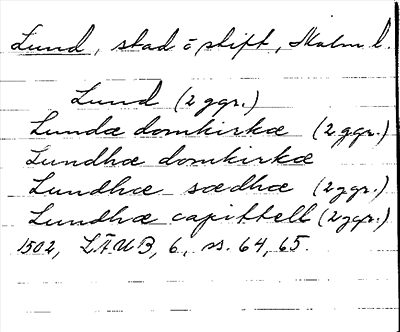 Lund, stad o stift, Malm. l.
Lund (2 ggr.)
Lundæ domkirkæ (2 ggr.)
Lundhæ domkirkæ
Lundhæ sædhæ (2 ggr.)
Lundhæ capittell (2 ggr.)
1502, LÄUB, 6, ss. 64, 65.